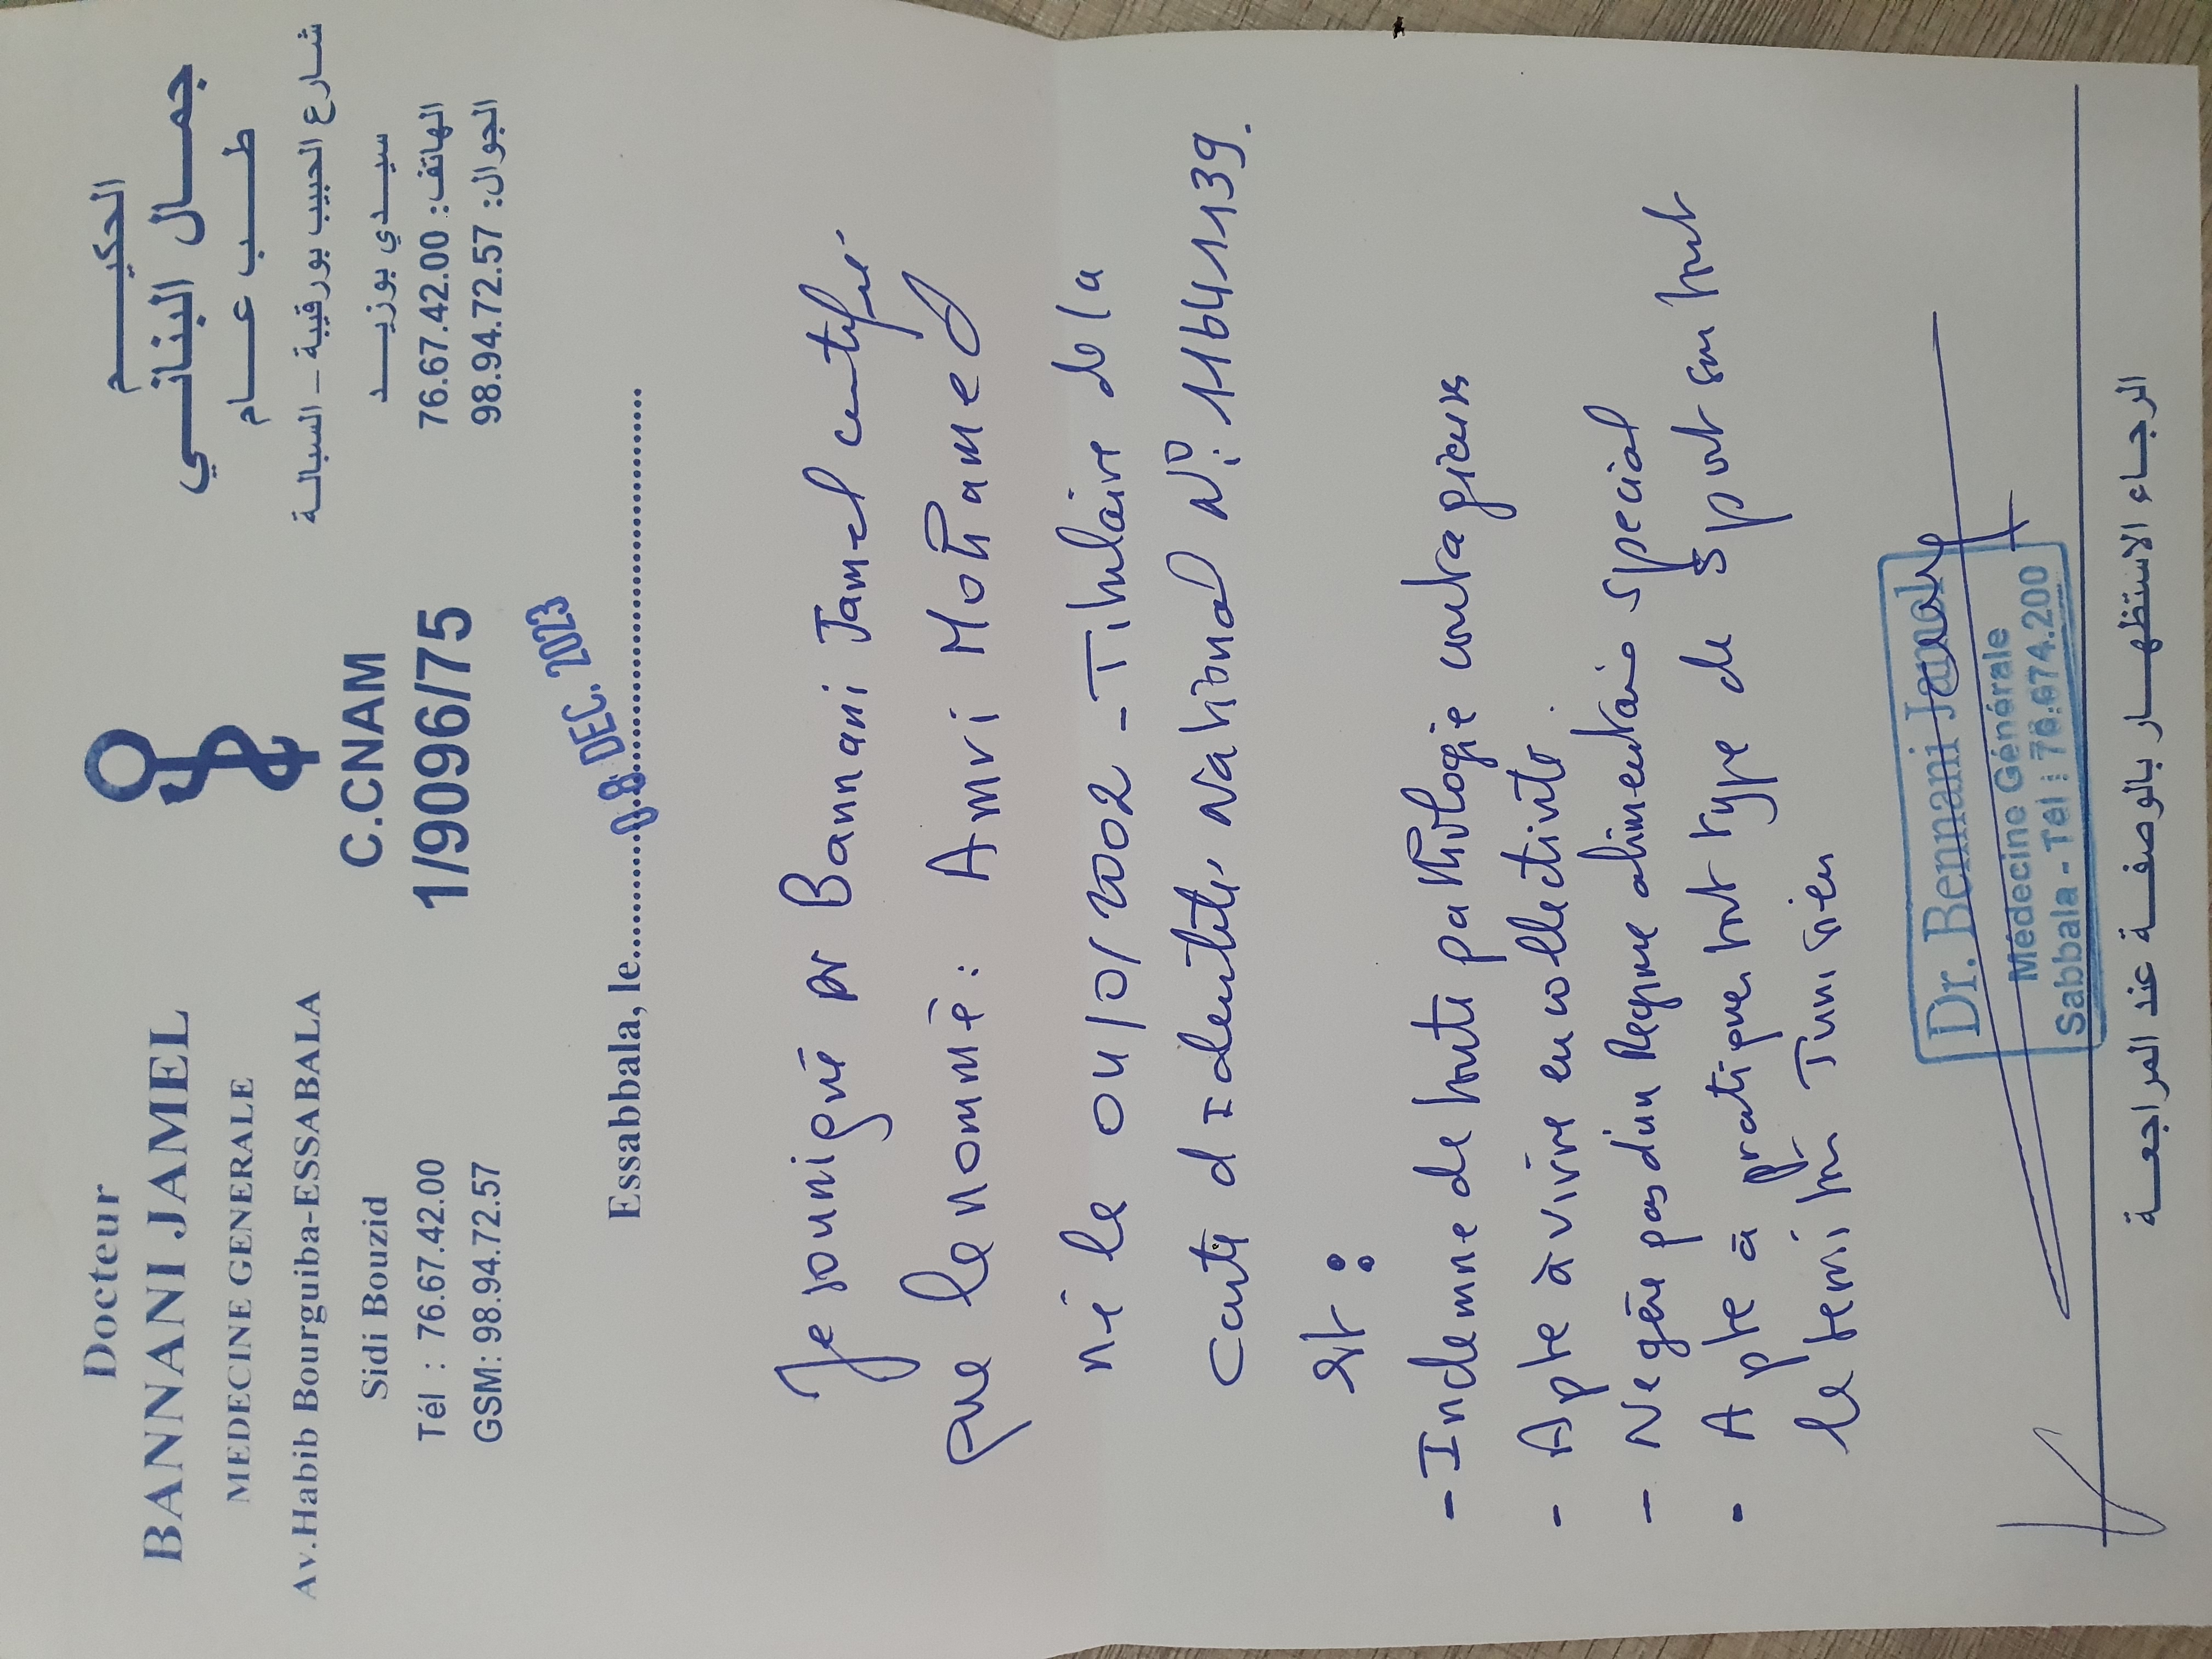 Docteur
BANNANI JAMEL
MEDECINE GENERALE
Av.Habib Bourguiba-ESSABALA
Sidi Bouzid
Tél : 76.67.42.00
GSM: 98.94.72.57
C.CNAM
1/9096/75
الحكيـــــــم
جمــال البنانــي
طـــب عـــام
شارع الحبيب بورقيبة – السبالـة
سيـــدي بوزيـــد
الهاتف: 76.67.42.00
الجوال: 98.94.72.57
Essabbala, le............................................
08 DEC. 2023
Je sousigné Dr Bannani Jamel certifie
que le nommé : Amri Mohamed
né le 04/01/2002 - Titulaire de la
carte d'Identité National N°: 11641139.
est :
- Indemne de toute pathologie contagieuse
- Apte à vivre en collectivité.
- Ne gère pas d'un Regime alimentaire special
- Apte à pratiquer tout type de sport sur tout
le territoire Tunisien
Dr. Bennani Jamel
Médecine Générale
Sabbala - Tél : 76.674.200
الرجـاء الاستظهـار بالوصفـة عند المراجعـة